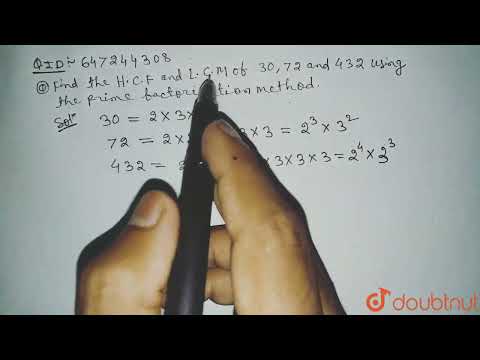 QID:- 647244308
Find the H.C.F and L.C.M of 30, 72 and 432 using
the prime factori tion method.
Solⁿ 30 = 2×3×
72 = 2× ×3 = 2³×3²
432 = 2 ×3×3×3 = 2⁴×3³
doubtnut